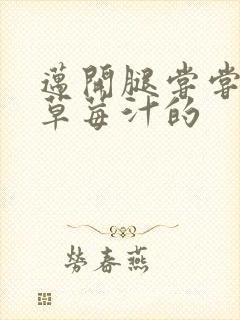 邁開腿嘗嘗
草莓汁的
勞春燕